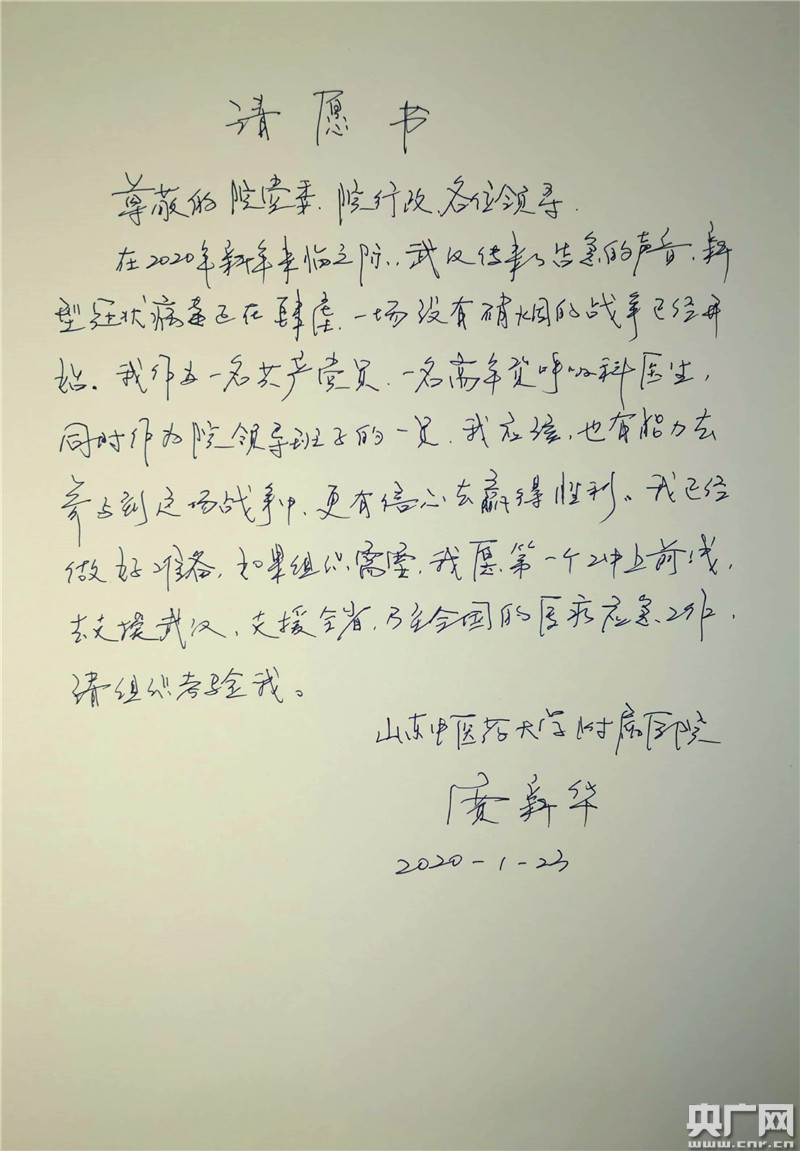 请愿书
尊敬的院党委、院行政、各位领导：
在2020年新年来临之际，武汉传来了告急的声音，新
型冠状病毒正在肆虐，一场没有硝烟的战争已经开
始。我作为一名共产党员，一名高年资呼吸科医生，
同时作为院领导班子的一员，我应该，也有能力去
参与到这场战争中，更有信心去赢得胜利。我已经
做好准备，如果组织需要，我愿第一个冲上前线，
去支援武汉、支援全省，乃至全国的医疗应急工作，
请组织考验我。
山东中医药大学附属医院
贾新华
2020-1-23
央广网
www.cnr.cn